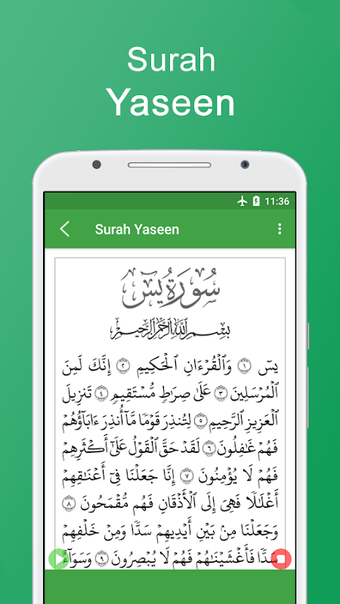 Surah
Yaseen
11:36
Surah Yaseen
سُورَةُ يسٓ
بِسْمِ ٱللَّهِ ٱلرَّحْمَٰنِ ٱلرَّحِيمِ
يسٓ ١ وَٱلْقُرْءَانِ ٱلْحَكِيمِ ٢ إِنَّكَ لَمِنَ
ٱلْمُرْسَلِينَ ٣ عَلَىٰ صِرَٰطٍ مُّسْتَقِيمٍ ٤ تَنزِيلَ
ٱلْعَزِيزِ ٱلرَّحِيمِ ٥ لِتُنذِرَ قَوْمًا مَّآ أُنذِرَ ءَابَآؤُهُمْ
فَهُمْ غَٰفِلُونَ ٦ لَقَدْ حَقَّ ٱلْقَوْلُ عَلَىٰٓ أَكْثَرِهِمْ
فَهُمْ لَا يُؤْمِنُونَ ٧ إِنَّا جَعَلْنَا فِىٓ أَعْنَٰقِهِمْ
أَغْلَٰلًا فَهِىَ إِلَى ٱلْأَذْقَانِ فَهُم مُّقْمَحُونَ ٨
وَجَعَلْنَا مِنۢ بَيْنِ أَيْدِيهِمْ سَدًّا وَمِنْ خَلْفِهِمْ
سَدًّا فَأَغْشَيْنَٰهُمْ فَهُمْ لَا يُبْصِرُونَ ٩ وَسَوَآءٌ